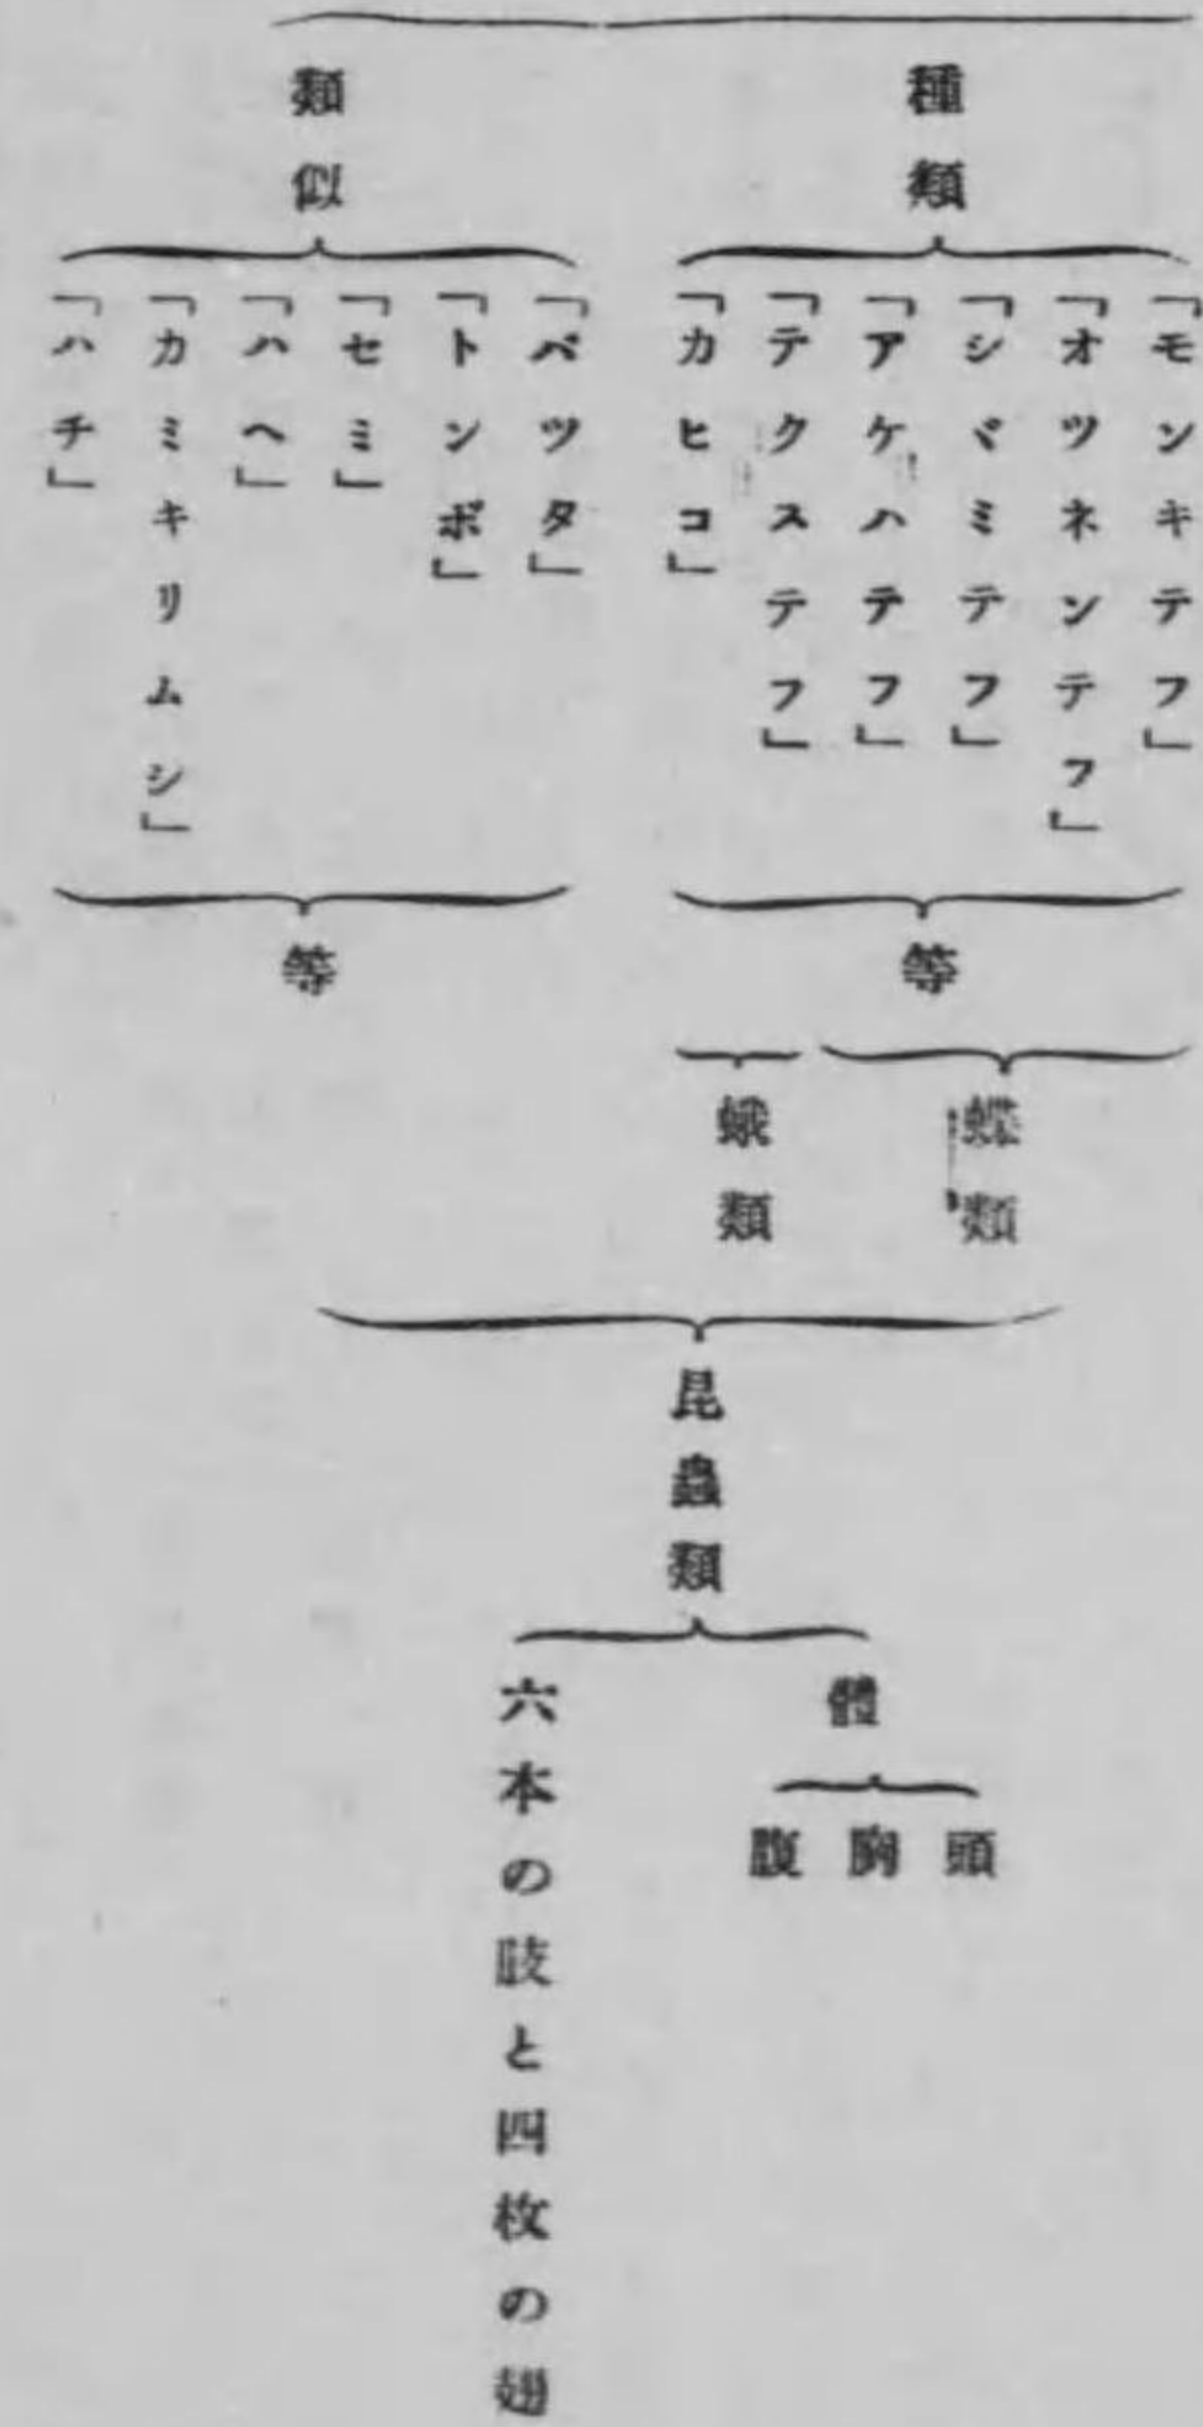 種類
「モンキテフ」
「オツネンテフ」
「シヾミテフ」
「アケハテフ」
「テクステフ」
「カヒコ」
等
蝶類
蛾類
類似
「バツタ」
「トンボ」
「セミ」
「ハヘ」
「カミキリムシ」
「ハチ」
等
昆蟲類
體
頭
胸
腹
六本の肢と四枚の翅